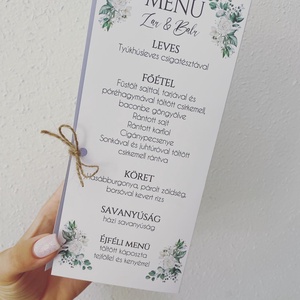 MENÜ
LEVES
Tyúkhúsleves csigatésztával
FŐÉTEL
Füstölt sajttal, tarjával és
póréhagymával töltött csirkemell,
baconbe göngyölve
Rántott sajt
Rántott karfiol
Cigánypecsenye
Sonkával és juhtúróval töltött
csirkemell rántva
KÖRET
Hasábburgonya, párolt zöldség,
borsóval kevert rizs
SAVANYÚSÁG
házi savanyúság
ÉJFÉLI MENÜ
töltött káposzta
tejföllel és kenyérrel